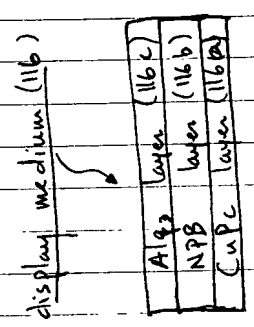 display medium (116)
Alq3 layer (116c)
NPB layer (116b)
CuPc layer (116a)